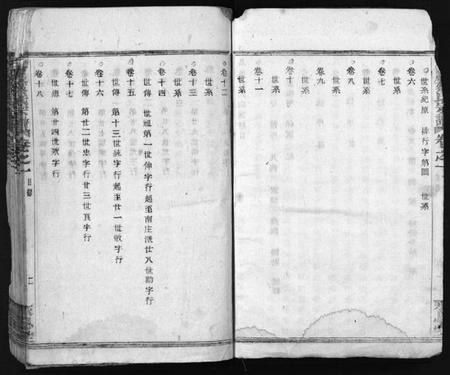 卷六
世系紀原 排行字第圖 世系
卷七
世系
卷八
世系
卷九
世系
卷十
世系
卷十一
世系
卷十二
世系
卷十三
世系
卷十四
世傳 第一世伸字行起至南庄派廿八世勛字行
卷十五
世傳 第十三世詠字行起至廿一世敬字行
卷十六
世傳 第廿二世忠字行廿三世良字行
卷十七
世傳 第廿四世 字行
卷十八
卷之一
目錄